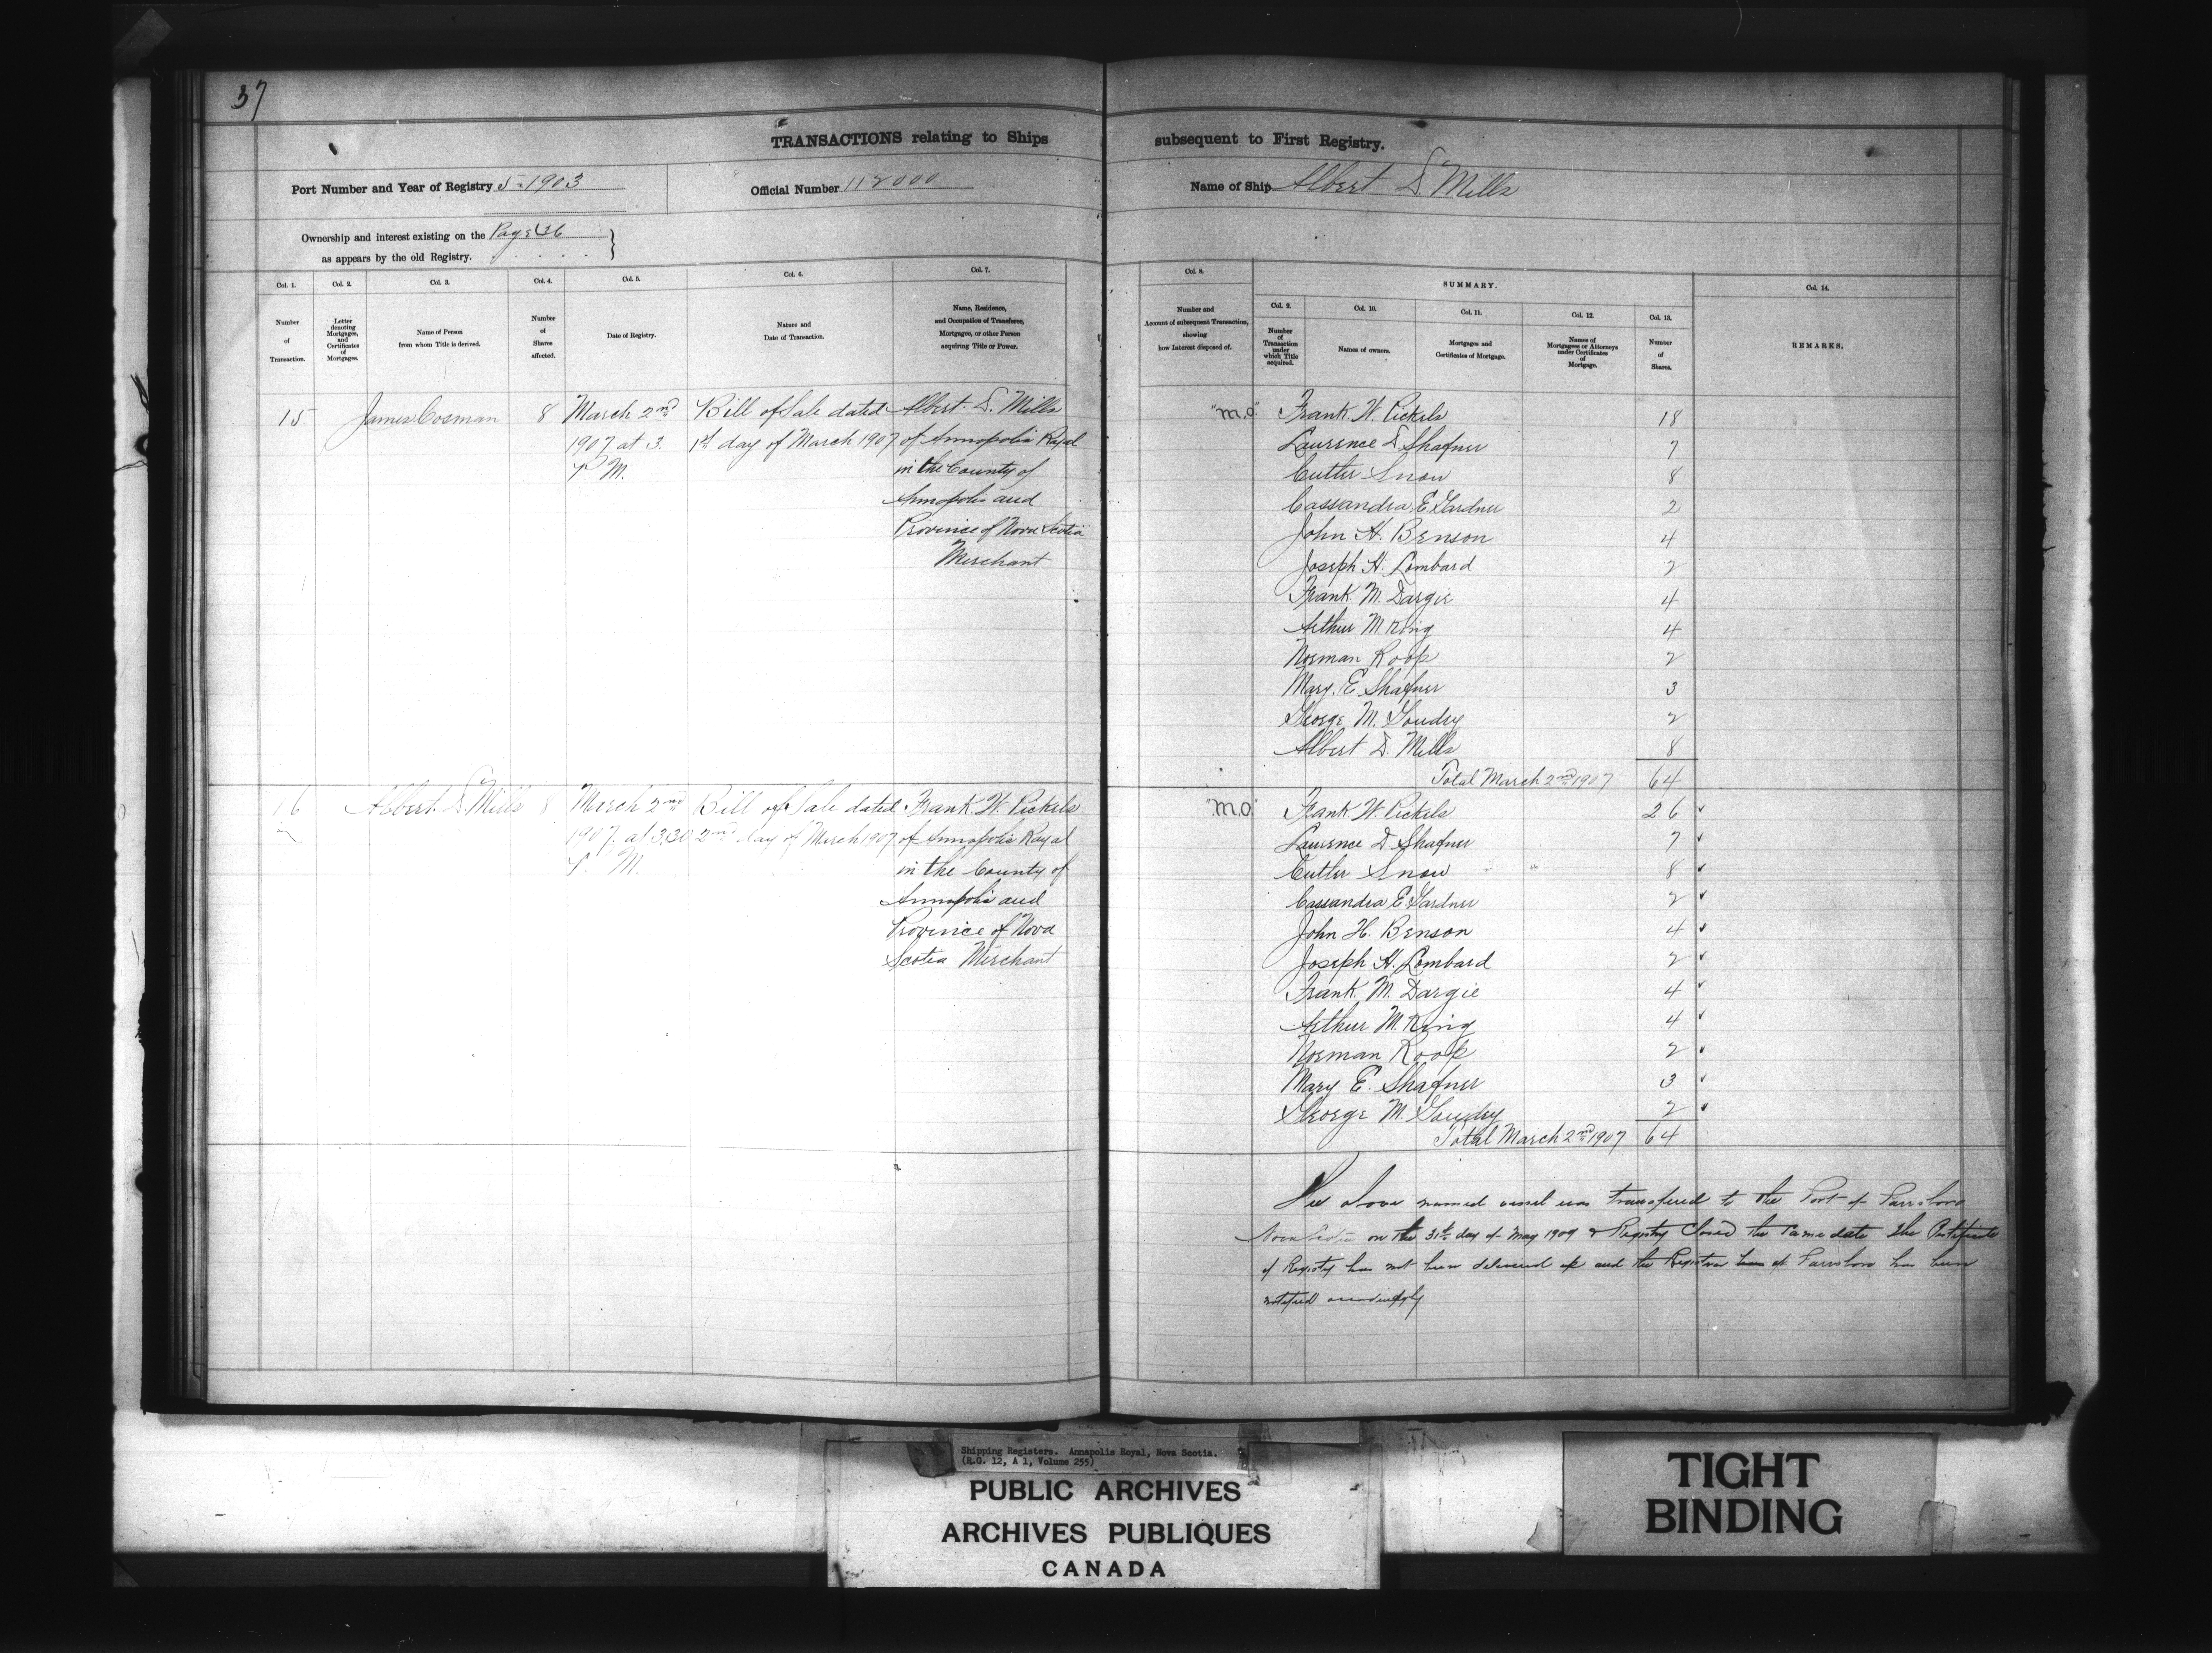 37
TRANSACTIONS relating to Ships subsequent to First Registry.
Port Number and Year of Registry 5-1903
Official Number 112000
Name of Ship Albert D. Mills
Ownership and interest existing on the Page 36
as appears by the old Registry. . . . . }
Col. 1.
Number
of
Transaction.
Col. 2.
Letter
denoting
Mortgages,
and
Certificates
of
Mortgages.
Col. 3.
Name of Person
from whom Title is derived.
Col. 4.
Number
of
Shares
affected.
Col. 5.
Date of Registry.
Col. 6.
Nature and
Date of Transaction.
Col. 7.
Name, Residence,
and Occupation of Transferee,
Mortgagee, or other Person
acquiring Title or Power.
Col. 8.
Number and
Account of subsequent Transaction,
showing
how Interest disposed of.
SUMMARY.
Col. 9.
Number
of
Transaction
under
which Title
acquired.
Col. 10.
Names of owners.
Col. 11.
Mortgages and
Certificates of Mortgage.
Col. 12.
Names of
Mortgagees or Attorneys
under Certificates
of
Mortgage.
Col. 13.
Number
of
Shares.
Col. 14.
REMARKS.
15
James Cosman
8
March 2nd
1907 at 3.
P. M.
Bill of Sale dated
1st day of March 1907
Albert D. Mills
of Annapolis Royal
in the County of
Annapolis and
Province of Nova Scotia
Merchant
"M.O." Frank W. Pickels 18
Laurence D. Shafner 7
Cutler Snow 8
Cassandra E. Gardner 2
John H. Benson 4
Joseph H. Lombard 2
Frank M. Dargie 4
Arthur M. King 4
Norman Roop 2
Mary E. Shafner 3
George M. Goudey 2
Albert D. Mills 8
Total March 2nd 1907 64
16
Albert D. Mills
8
March 2nd
1907 at 3.30
P. M.
Bill of Sale dated
2nd day of March 1907
Frank W. Pickels
of Annapolis Royal
in the County of
Annapolis and
Province of Nova
Scotia Merchant
"M.O." Frank W. Pickels 26
Laurence D. Shafner 7
Cutler Snow 8
Cassandra E. Gardner 2
John H. Benson 4
Joseph H. Lombard 2
Frank M. Dargie 4
Arthur M. King 4
Norman Roop 2
Mary E. Shafner 3
George M. Goudey 2
Total March 2nd 1907 64
The above named vessel was transfered to the Port of Parrsboro
Nova Scotia on the 31st day of May 1909 & Registry Closed the same date The Certificate
of Registry has not been delivered up and the Registrar at Parrsboro has been
notified accordingly
Shipping Registers. Annapolis Royal, Nova Scotia.
(R.G. 12, A 1, Volume 255)
PUBLIC ARCHIVES
ARCHIVES PUBLIQUES
CANADA
TIGHT
BINDING